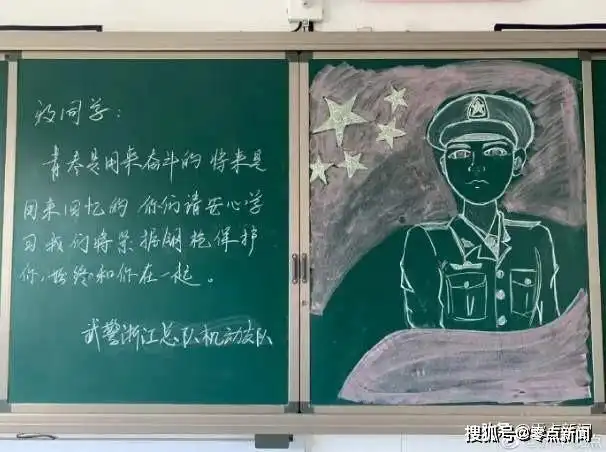 致同学：
青春是用来奋斗的 将来是
用来回忆的 你们请安心学
习我们将紧握钢枪保护
你，始终和你在一起。
武警浙江总队机动支队
搜狐号@零点新闻